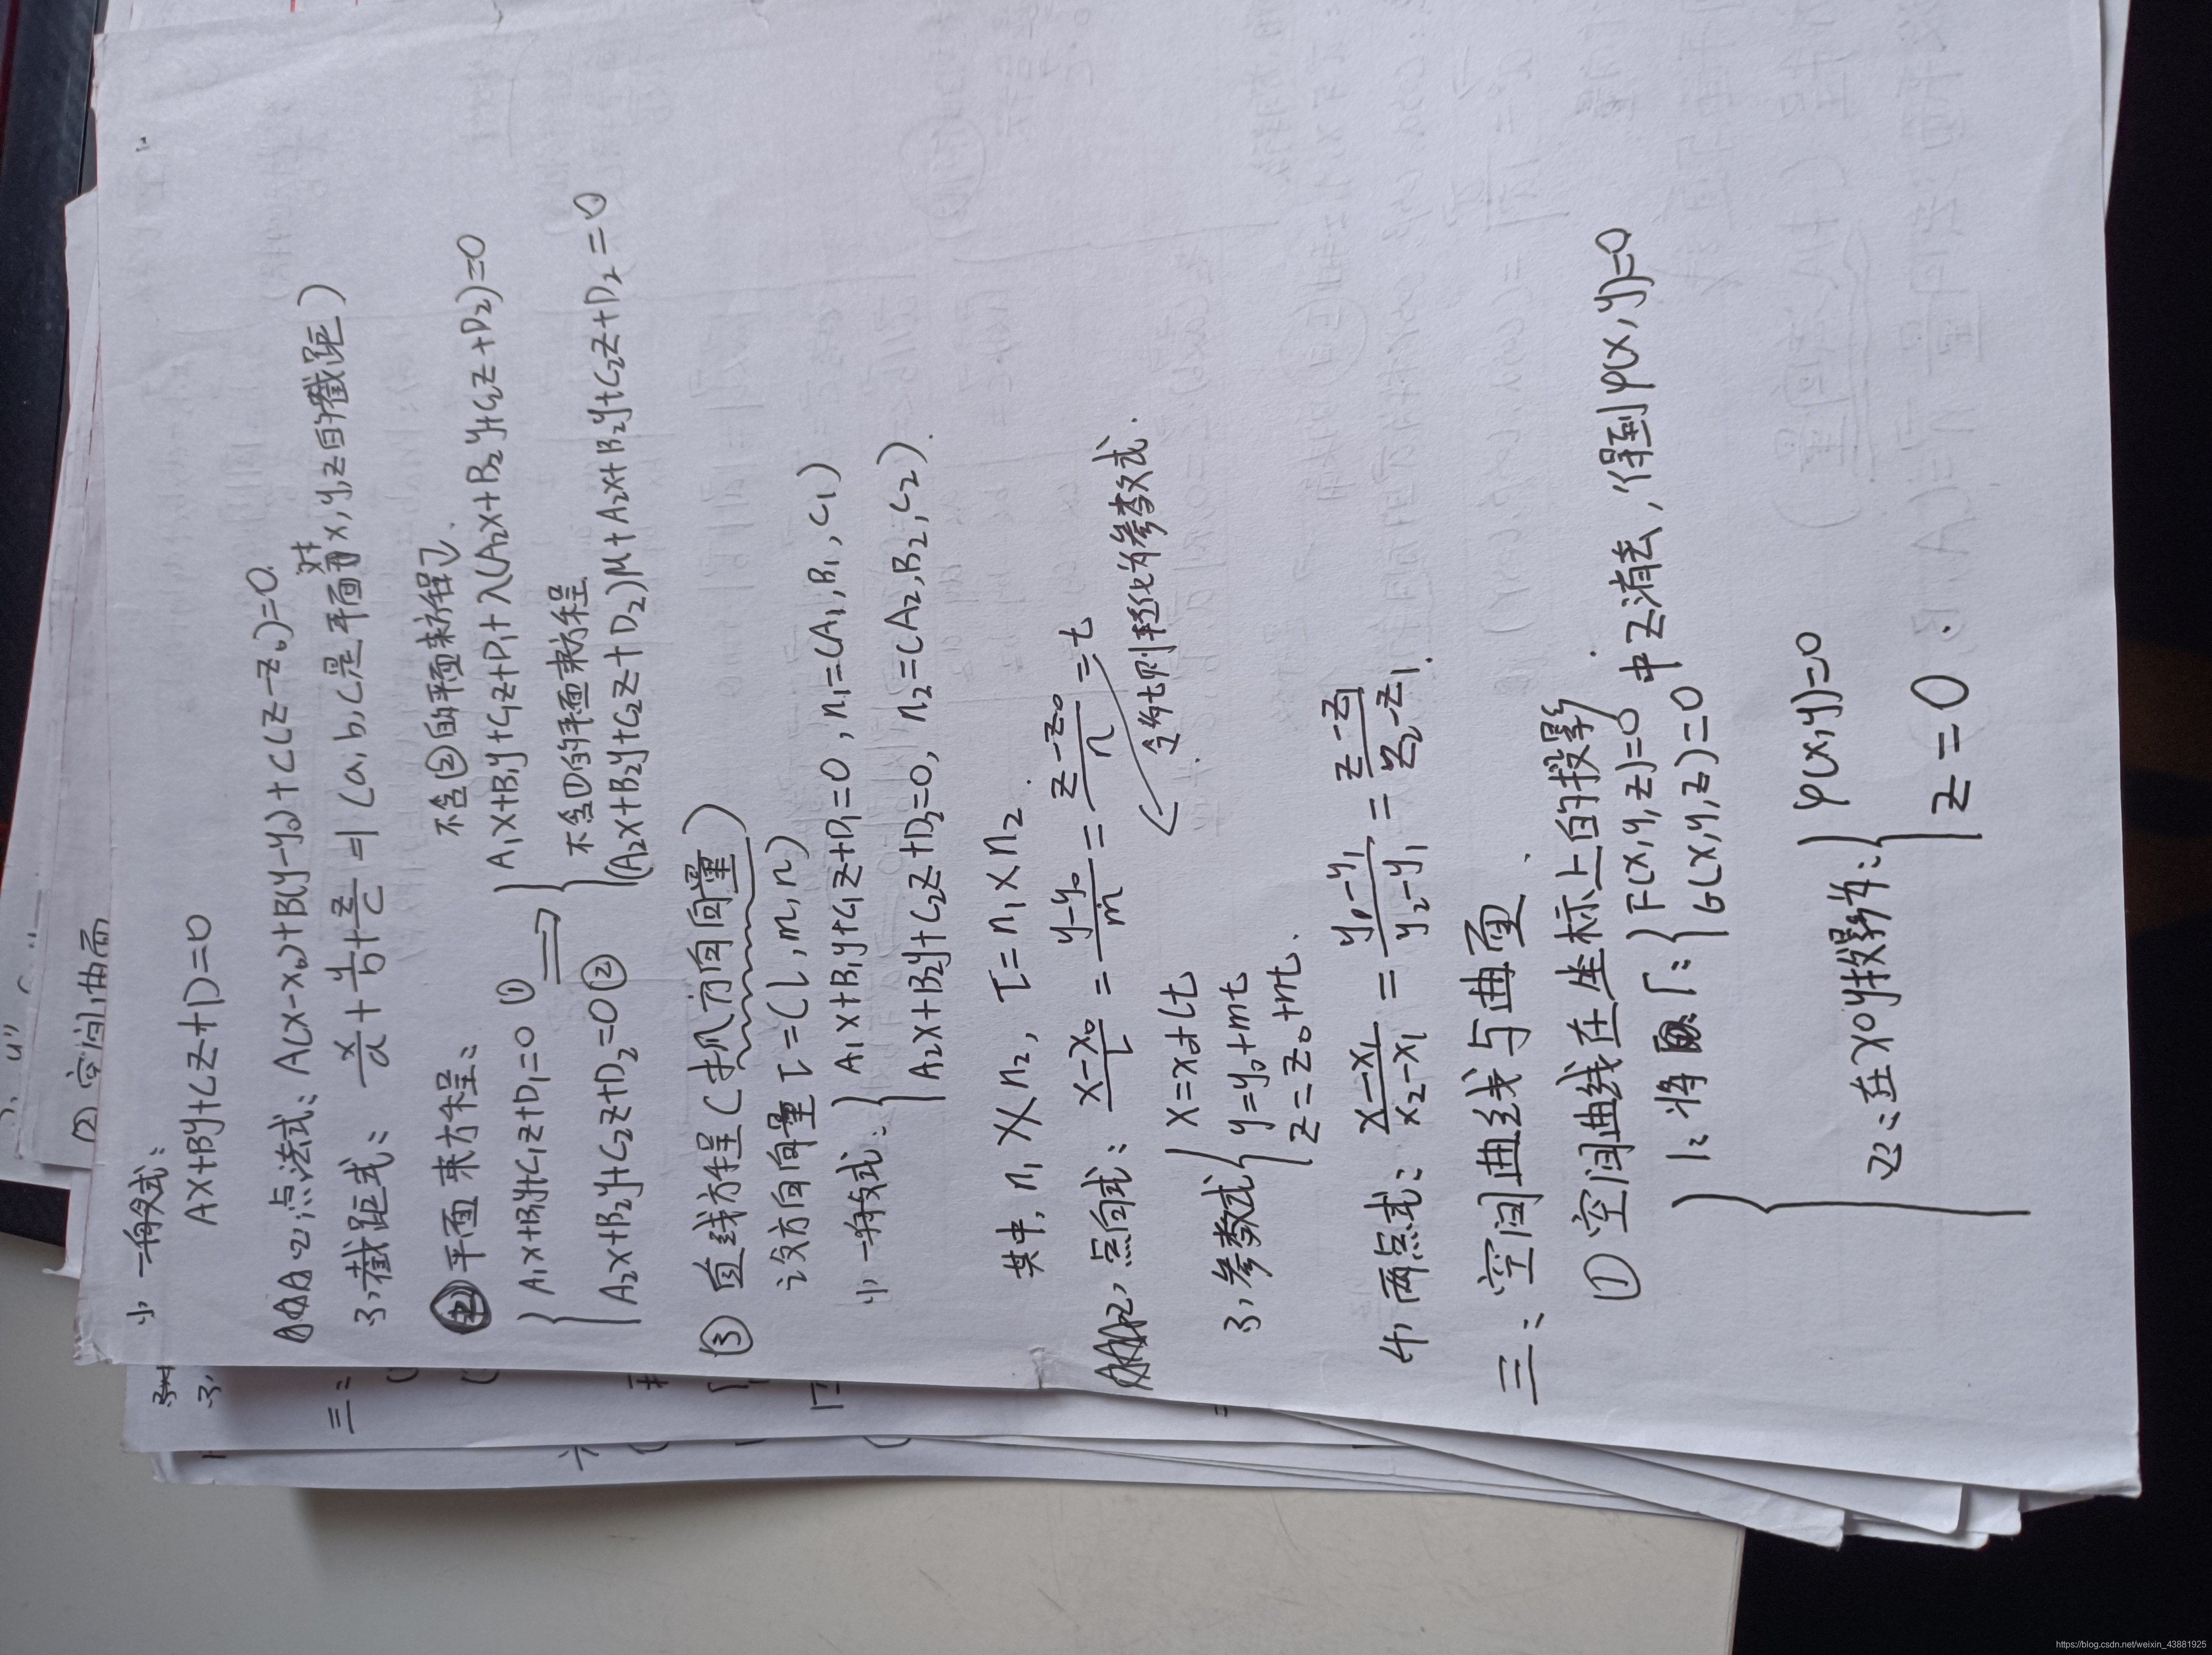 (2) 空间曲面
1, 一般式:
Ax+By+Cz+D=0
2, 点法式: A(x-x₀)+B(y-y₀)+C(z-z₀)=0.
3, 截距式: x/a + y/b + z/c = 1 (a, b, c是平面对x, y, z的截距)
② 平面束方程:
不含②的平面束方程
{ A₁x+B₁y+C₁z+D₁=0 ①
A₂x+B₂y+C₂z+D₂=0 ②
⇒ { A₁x+B₁y+C₁z+D₁+λ(A₂x+B₂y+C₂z+D₂)=0
不含①的平面束方程
(A₂x+B₂y+C₂z+D₂)μ+A₂x+B₂y+C₂z+D₂=0
③ 直线方程 (抓方向向量)
设方向向量 τ=(l, m, n)
1, 一般式: { A₁x+B₁y+C₁z+D₁=0, n₁=(A₁, B₁, C₁)
A₂x+B₂y+C₂z+D₂=0, n₂=(A₂, B₂, C₂).
其中, n₁ ∦ n₂, τ=n₁×n₂.
2, 点向式: (x-x₀)/l = (y-y₀)/m = (z-z₀)/n = t
令为t则转化为参数式.
3, 参数式 { x=x₀+lt
y=y₀+mt
z=z₀+nt.
4, 两点式: (x-x₁)/(x₂-x₁) = (y-y₁)/(y₂-y₁) = (z-z₁)/(z₂-z₁).
三: 空间曲线与曲面.
① 空间曲线在坐标上的投影.
1: 将 Γ: { F(x,y,z)=0
G(x,y,z)=0 中z消去, 得到φ(x,y)=0
2: 在xoy投影为: { φ(x,y)=0
z=0.
https://blog.csdn.net/weixin_43881925